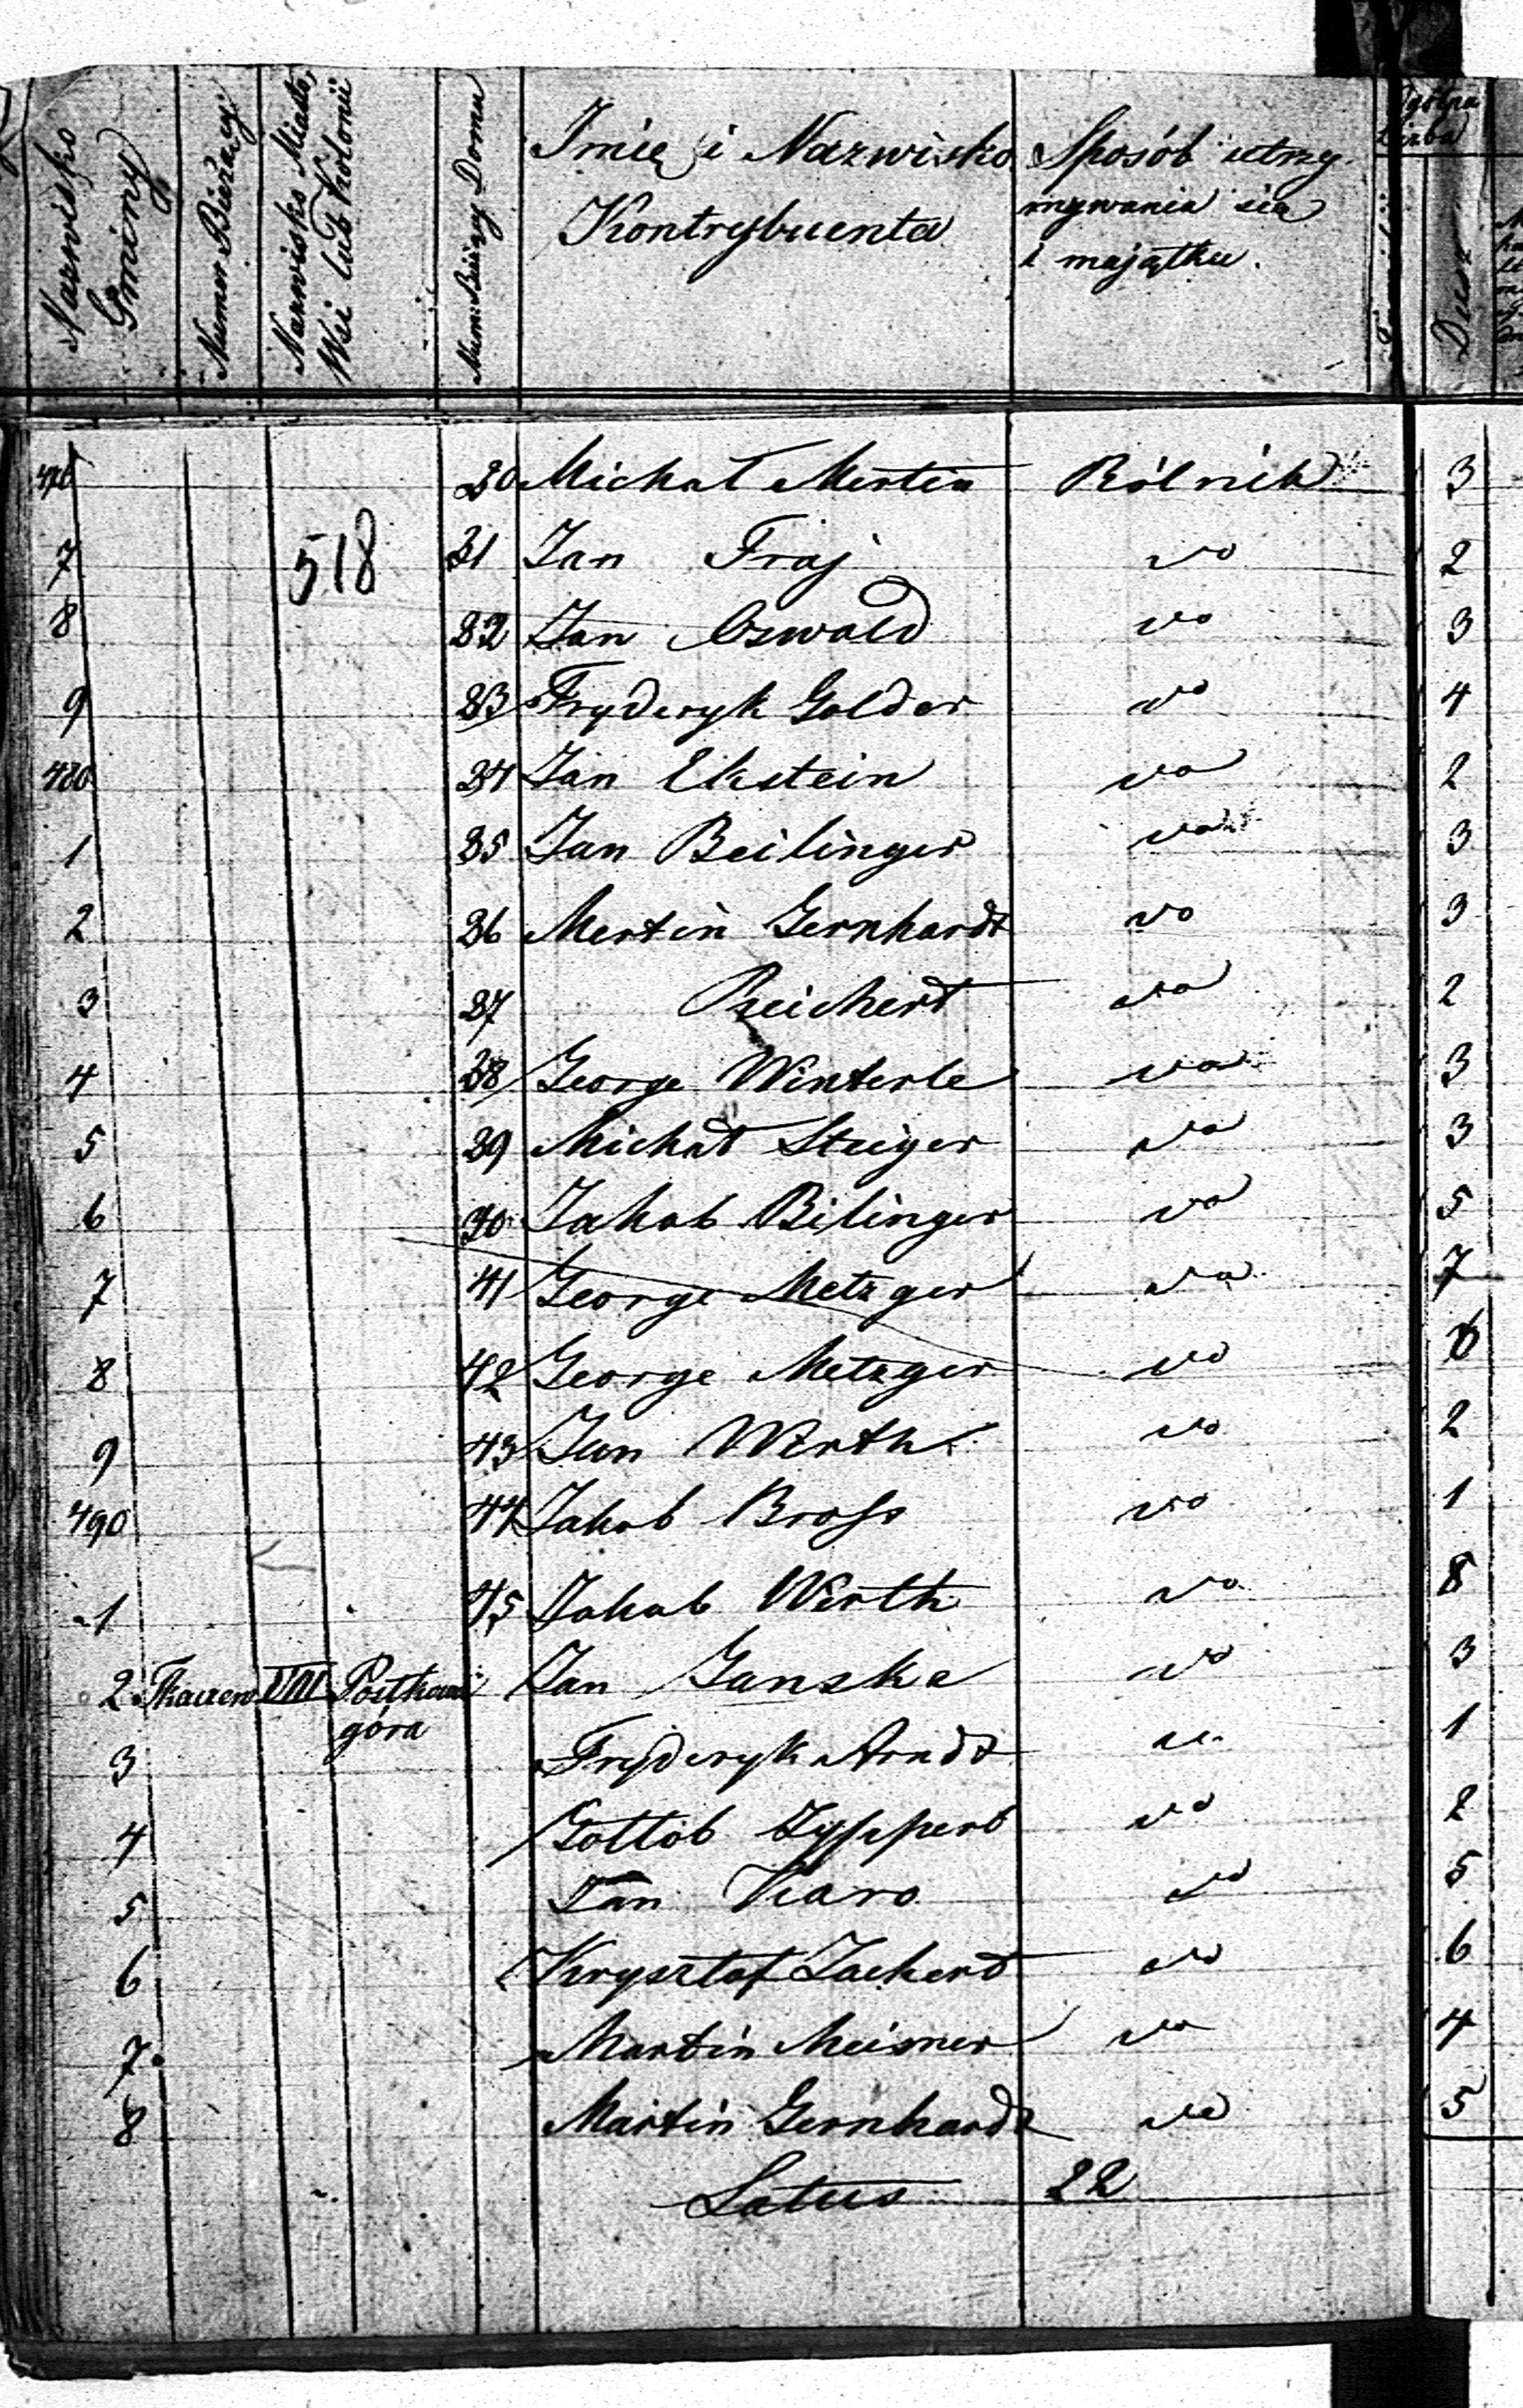 Nazwisko Gminy
Numer Bieżący
Nazwisko Miasta, Wsi lub Kolonii
Num: Bieżący Domu
Imię i Nazwisko Kontrybuenta
Sposób utrzymywania się i majątku.
Dusz
20 Michał Mertin Rólnik 3
518
7 31 Jan Fraj vo 2
8 32 Jan Oswald vo 3
9 33 Fryderyk Golder vo 4
480 34 Jan Ekstein vo 2
1 35 Jan Beilinger vo 3
2 36 Mertin Gernhardt vo 3
3 37 Reichert vo 2
4 38 George Winterle vo 3
5 39 Michał Steiger vo 3
6 30 Jakob Bilinger vo 5
7 41 George Metzger vo 7
8 42 George Metzger vo 6
9 43 Jan Wirth vo 2
490 44 Jakob Bross vo 1
1 45 Jakob Wirth vo 8
2 VIII góra Jan Janske vo 3
3 Fryderyk Arndt vo 1
4 Gottlob vo 2
5 Jan Karo vo 5
6 Krysztof Zackert vo 6
7 Martin Meisner vo 4
8 Martin Gernhardt vo 5
Latus 22